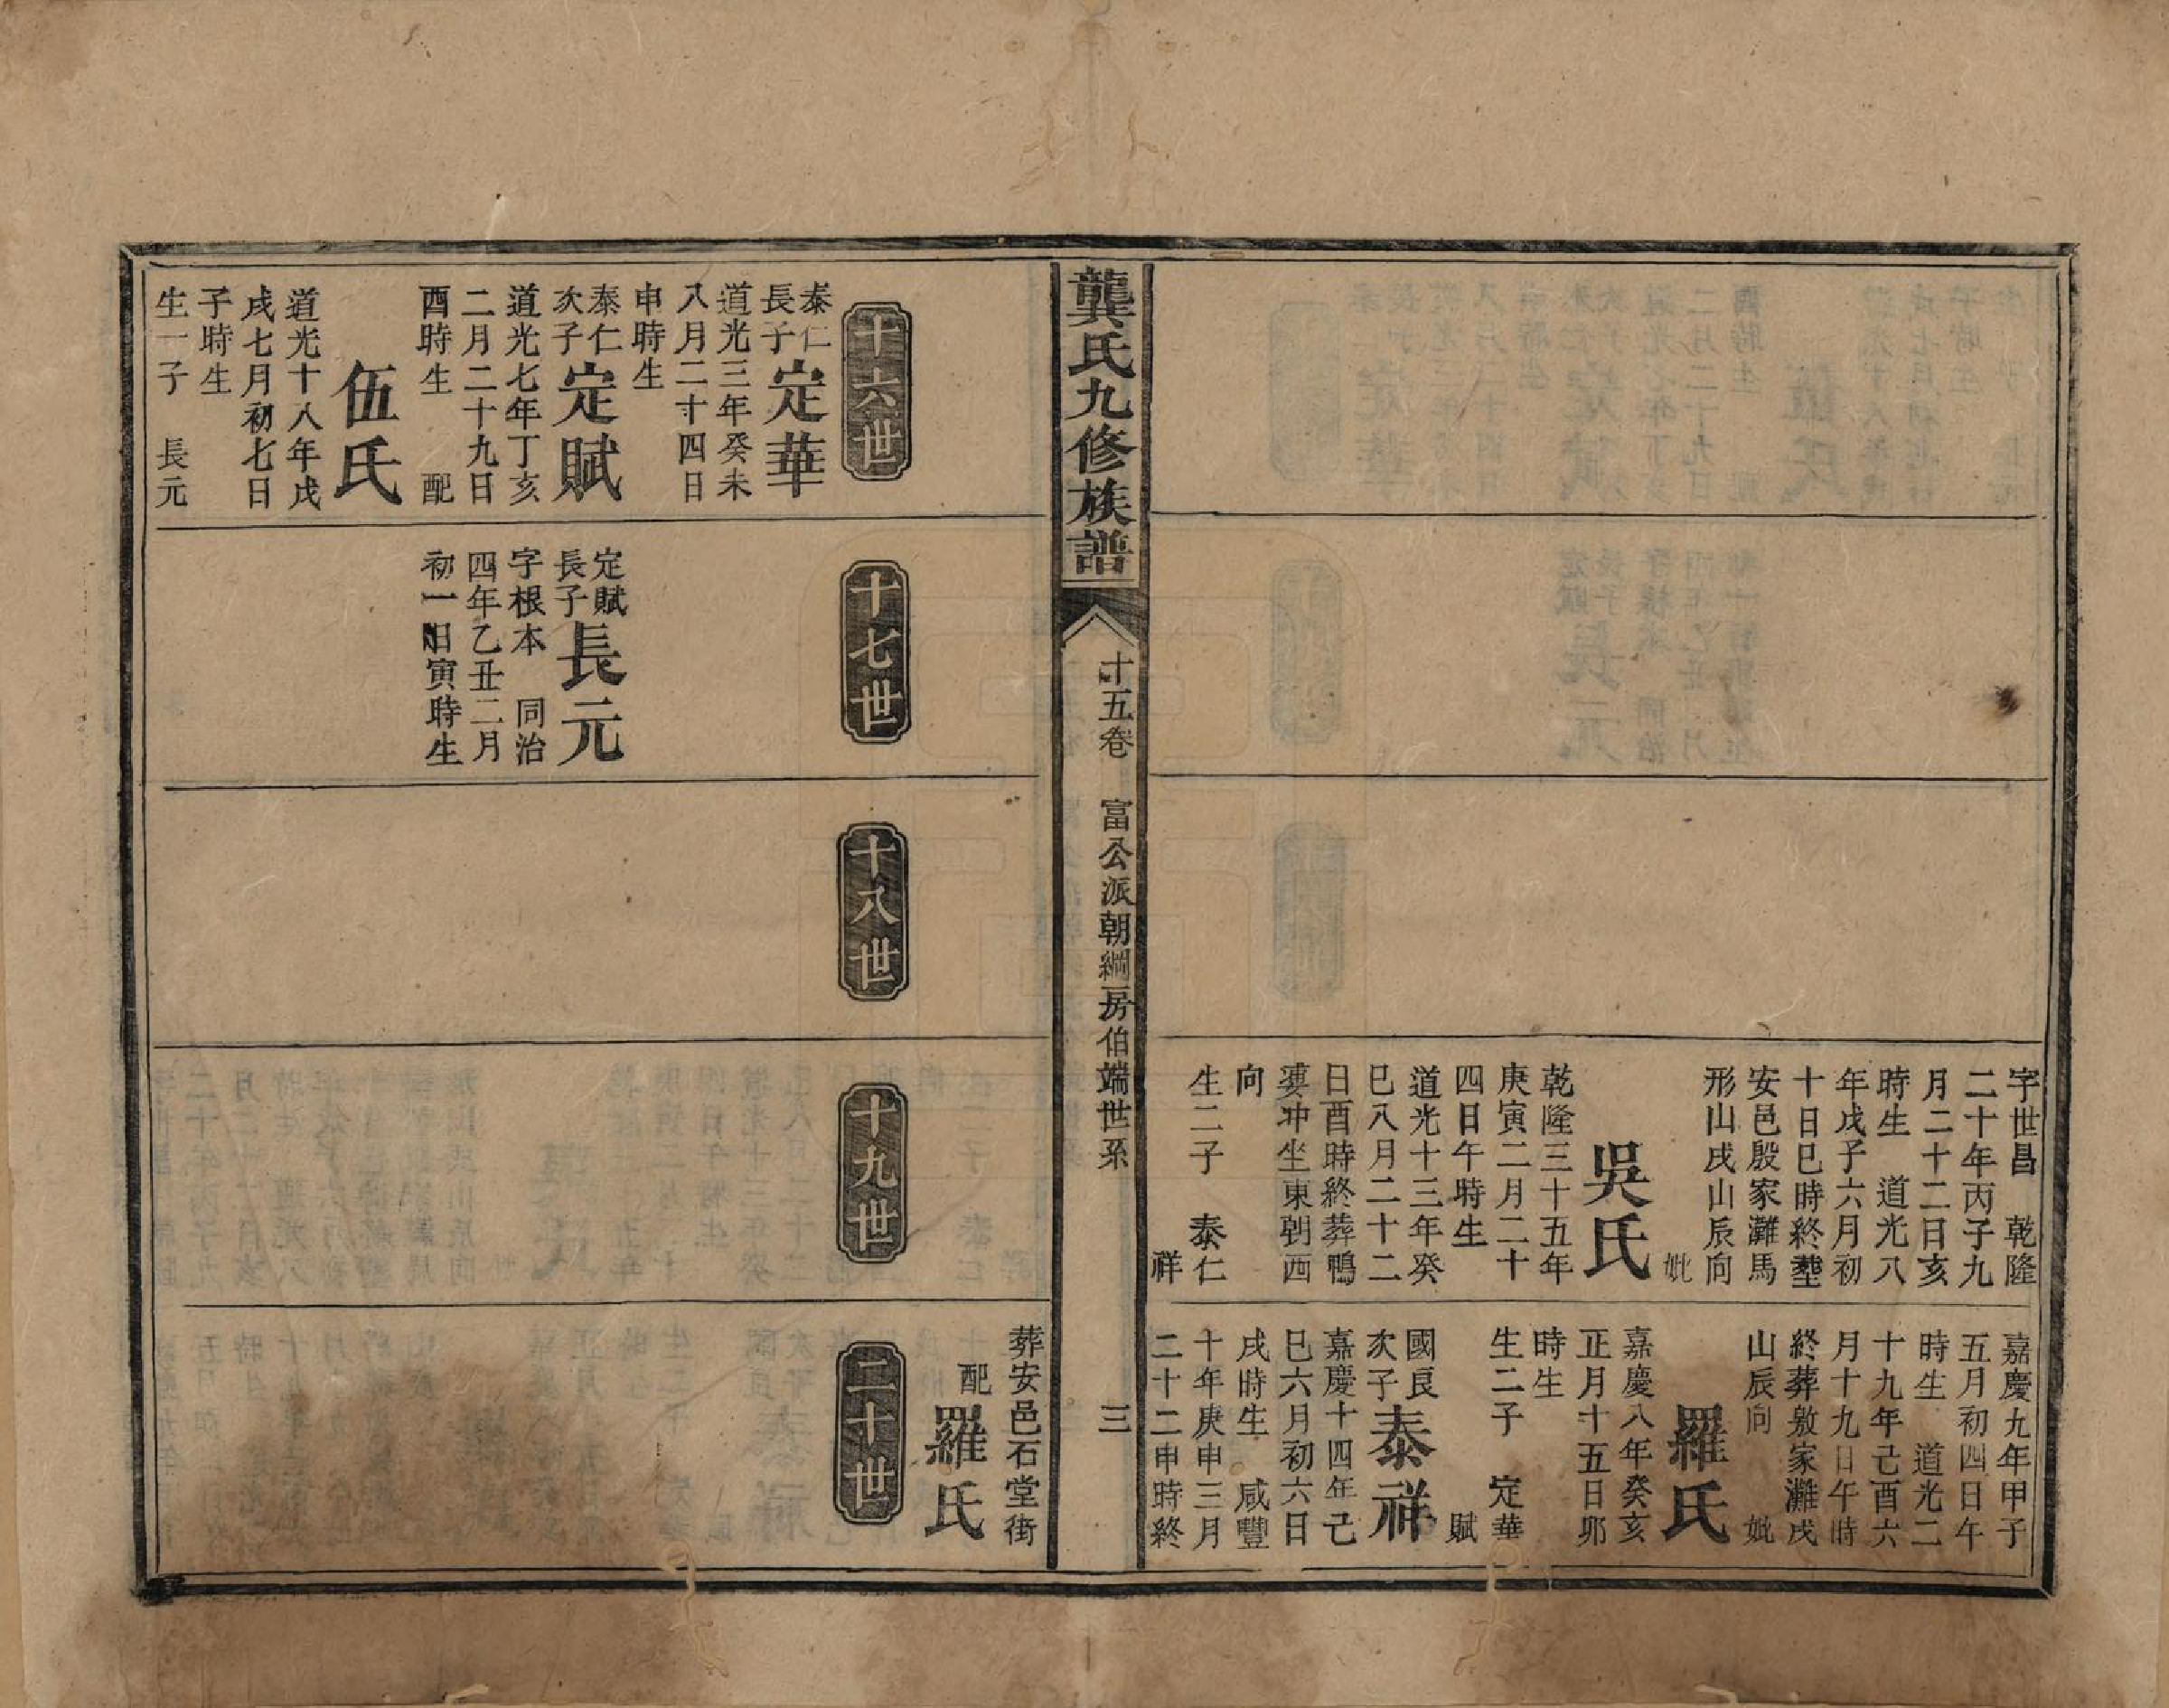 字世昌　乾隆
二十年丙子九
月二十二日亥
時生　道光八
年戊子六月初
十日巳時終塟
安邑殷家灘馬
形山戌山辰向
妣
吳氏
乾隆三十五年
庚寅二月二十
四日午時生
道光十三年癸
巳八月二十二
日酉時終葬鴨
婆冲坐東朝西
向
生二子　泰仁
祥
嘉慶九年甲子
五月初四日午
時生　道光二
十九年己酉六
月十九日午時
終葬敫家灘戌
山辰向　妣
羅氏
嘉慶八年癸亥
正月十五日卯
時生
生二子　定華
賦
國良
次子泰祥
嘉慶十四年己
巳六月初六日
戌時生　咸豐
十年庚申三月
二十二申時終
龔氏九修族譜
十五卷　富公派朝綱房伯端世系
三
十六世
泰仁
長子定華
道光三年癸未
八月二十四日
申時生
泰仁
次子定賦
道光七年丁亥
二月二十九日
酉時生　配
伍氏
道光十八年戊
戌七月初七日
子時生
生一子　長元
十七世
定賦
長子長元
字根本　同治
四年乙丑二月
初一日寅時生
十八世
十九世
葬安邑石堂街
配
羅氏
二十世